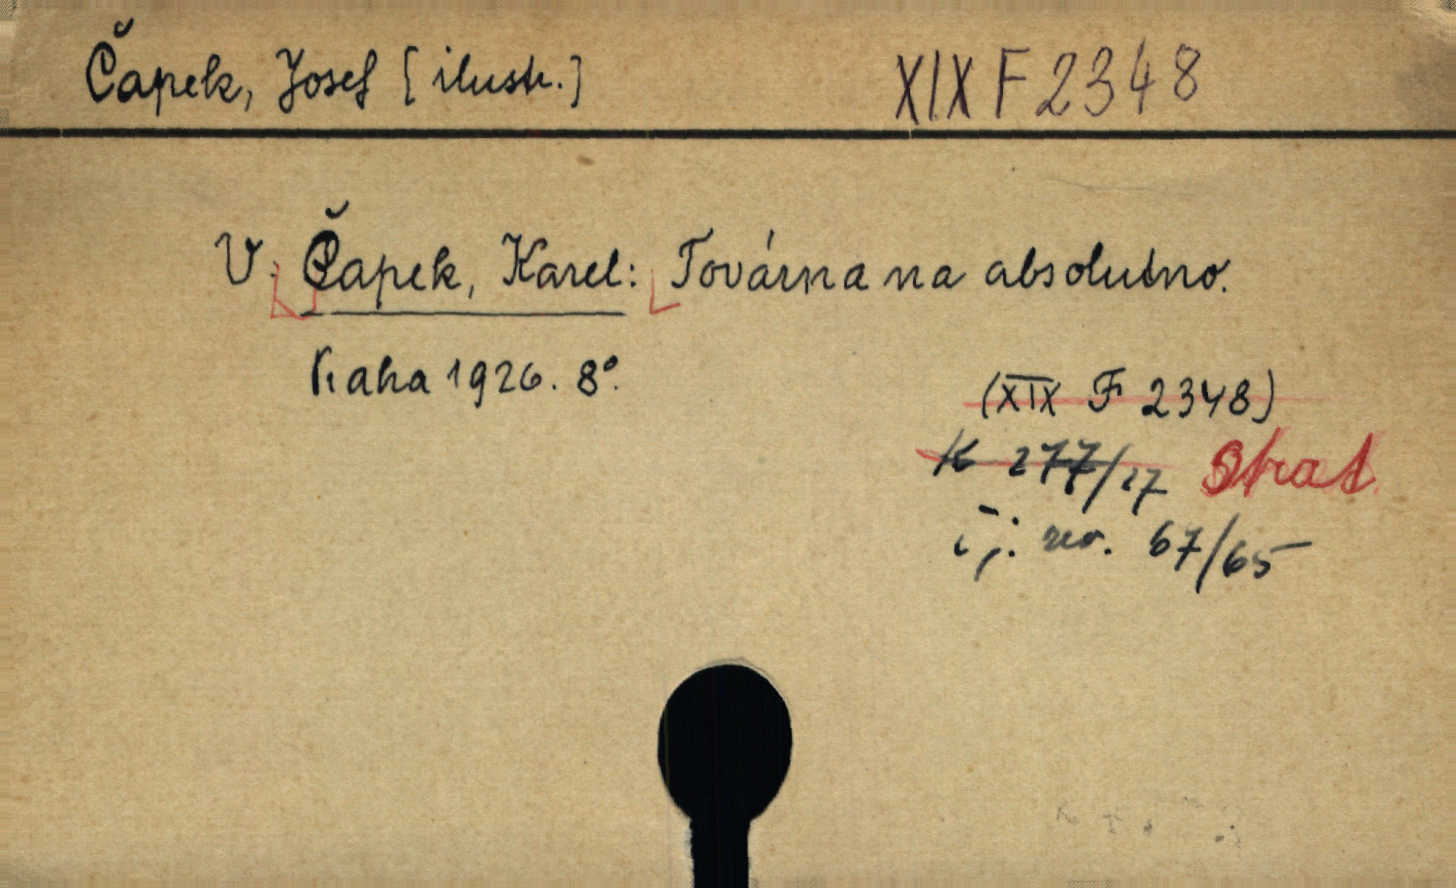 Čapek, Josef [ilustr.] XIX F 2348
V. Čapek, Karel: Továrna na absolutno.
Praha 1926. 8°.
(XIX F 2348)
K 277/27 Strat.
čj. rev. 67/65